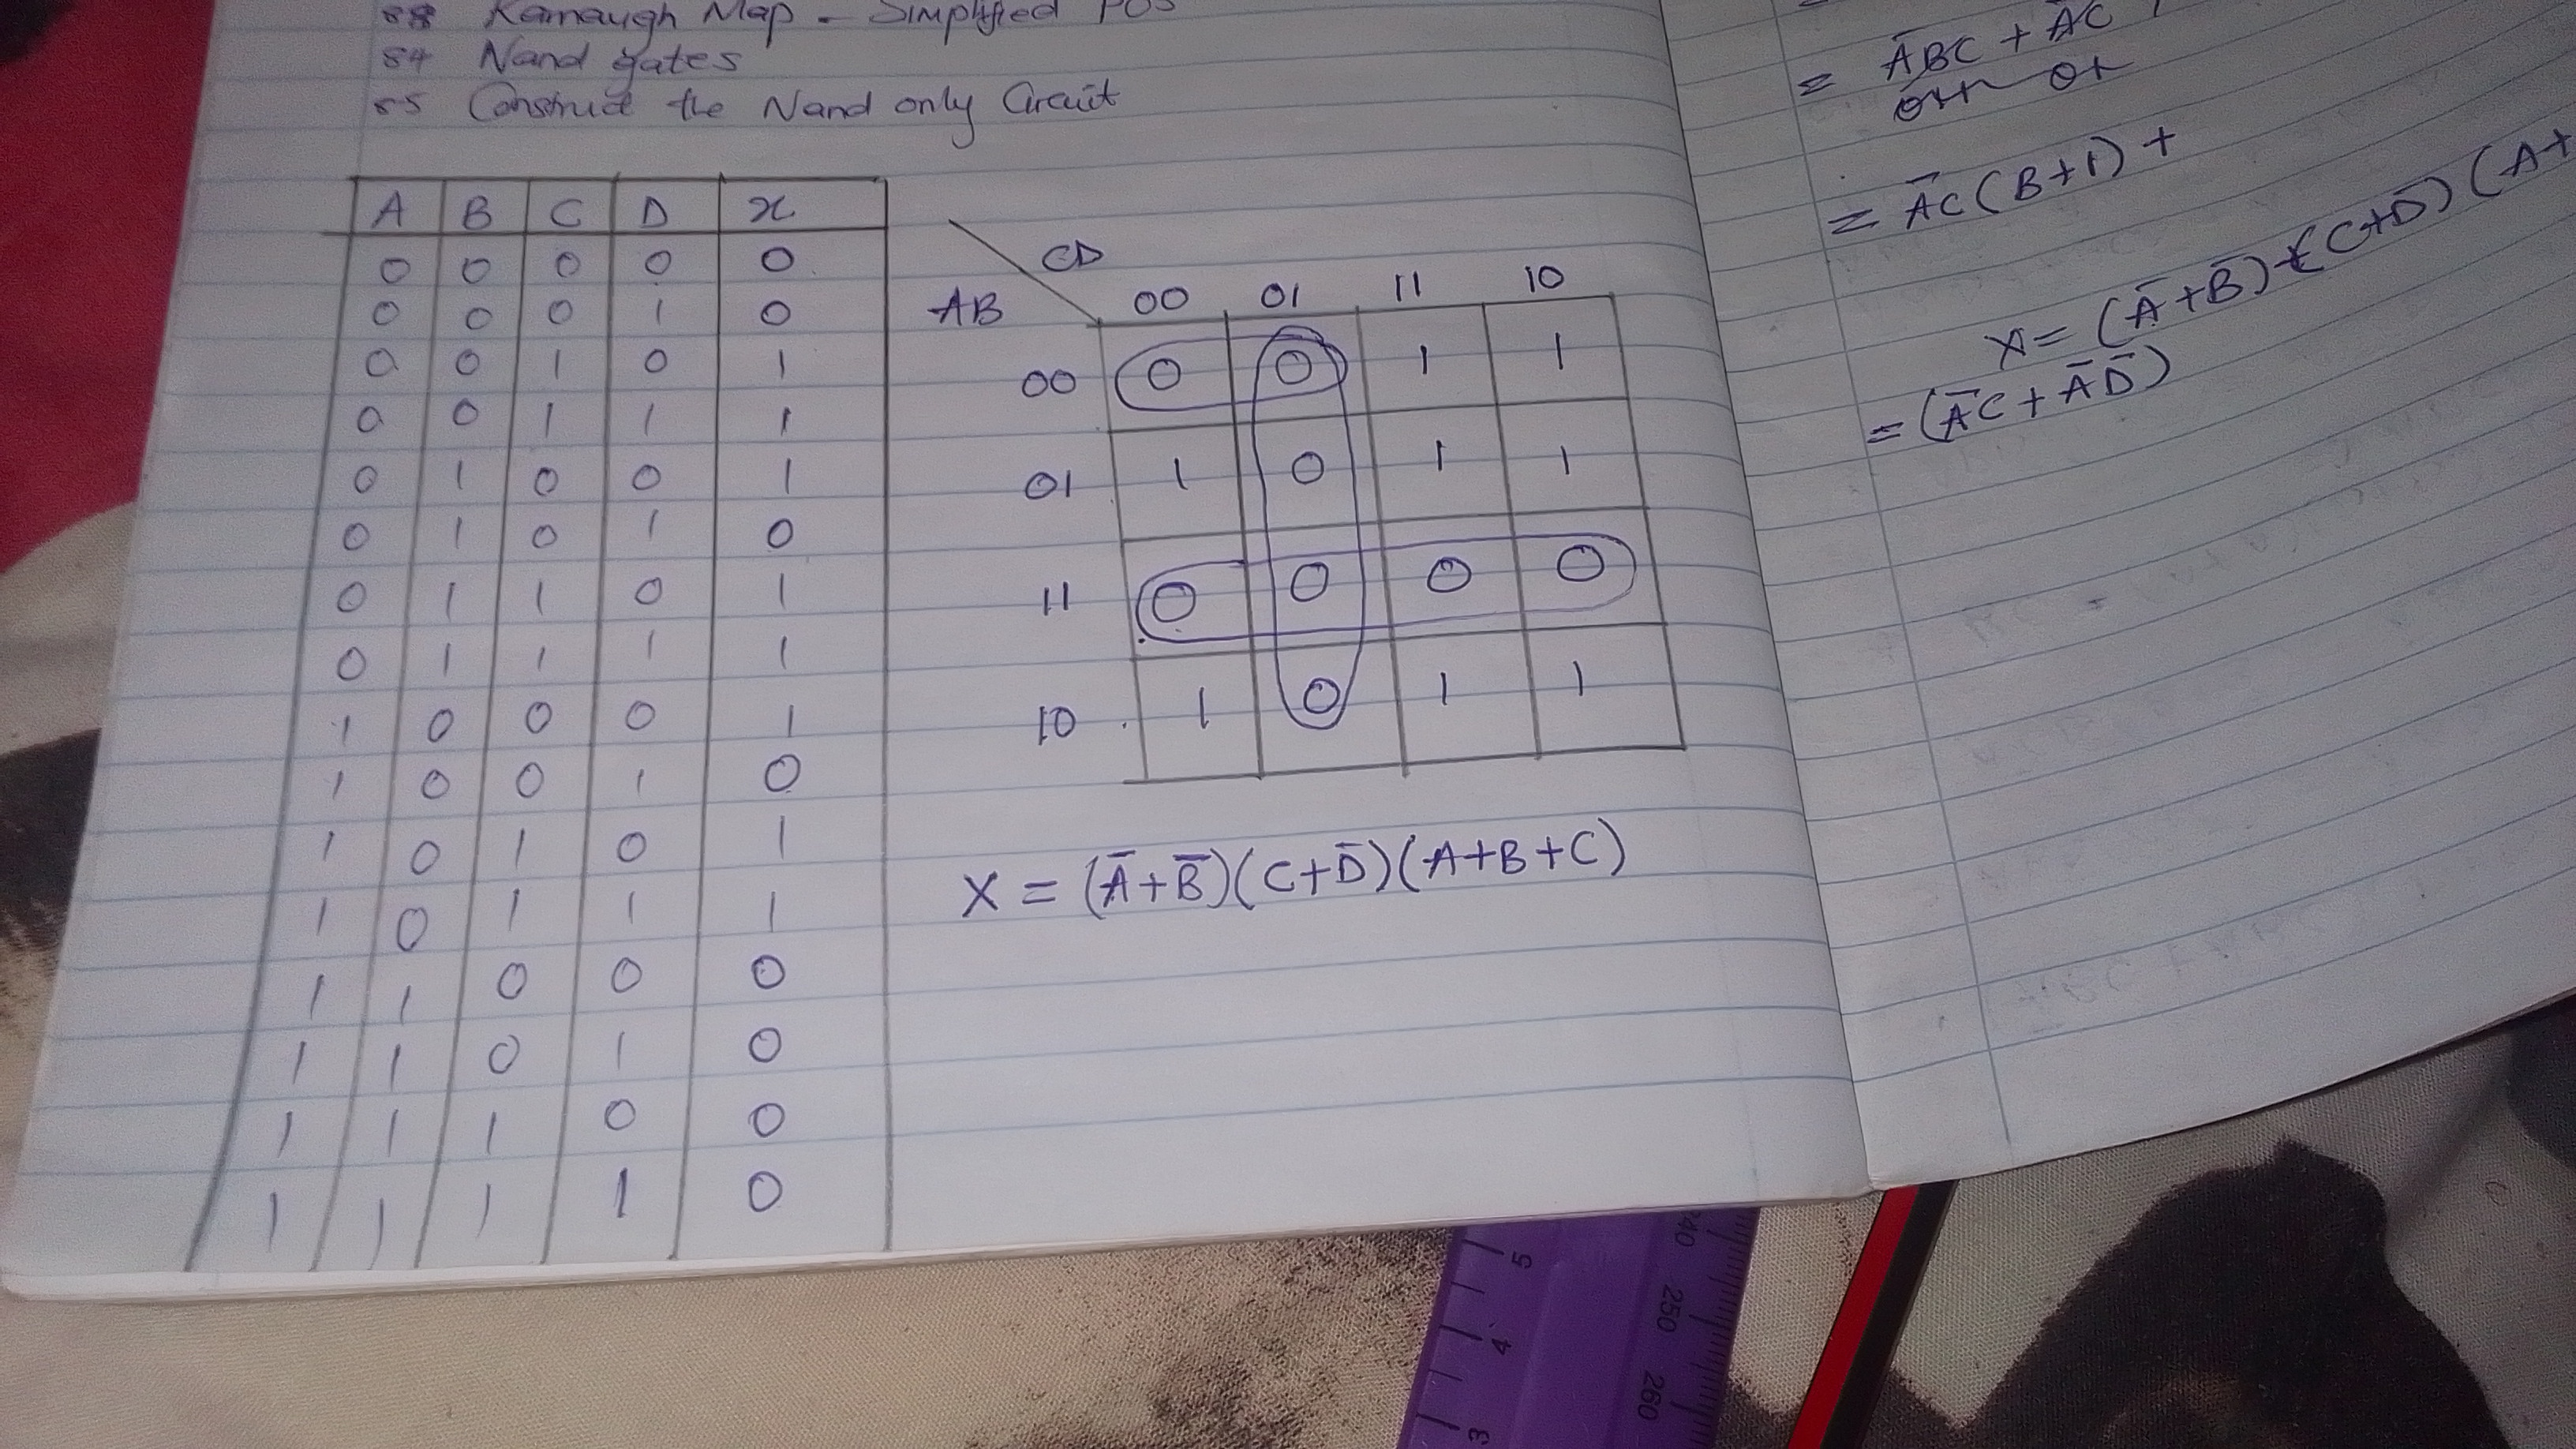 88 Karnaugh Map - Simplified POS
84 Nand gates
85 Construct the Nand only Circuit
A B C D x
0 0 0 0 0
0 0 0 1 0
0 0 1 0 1
0 0 1 1 1
0 1 0 0 1
0 1 0 1 0
0 1 1 0 1
0 1 1 1 1
1 0 0 0 1
1 0 0 1 0
1 0 1 0 1
1 0 1 1 1
1 1 0 0 0
1 1 0 1 0
1 1 1 0 0
1 1 1 1 0
CD
AB 00 01 11 10
00 0 0 1 1
01 1 0 1 1
11 0 0 0 0
10 1 0 1 1
X = (A̅+B̅)(C+D̅)(A+B+C)
= A̅BC + A̅C
= A̅C(B+1) +
X= (A̅+B̅)(C+D̅)(A+
= (A̅C + A̅D̅)
5 4 3
240 250 260